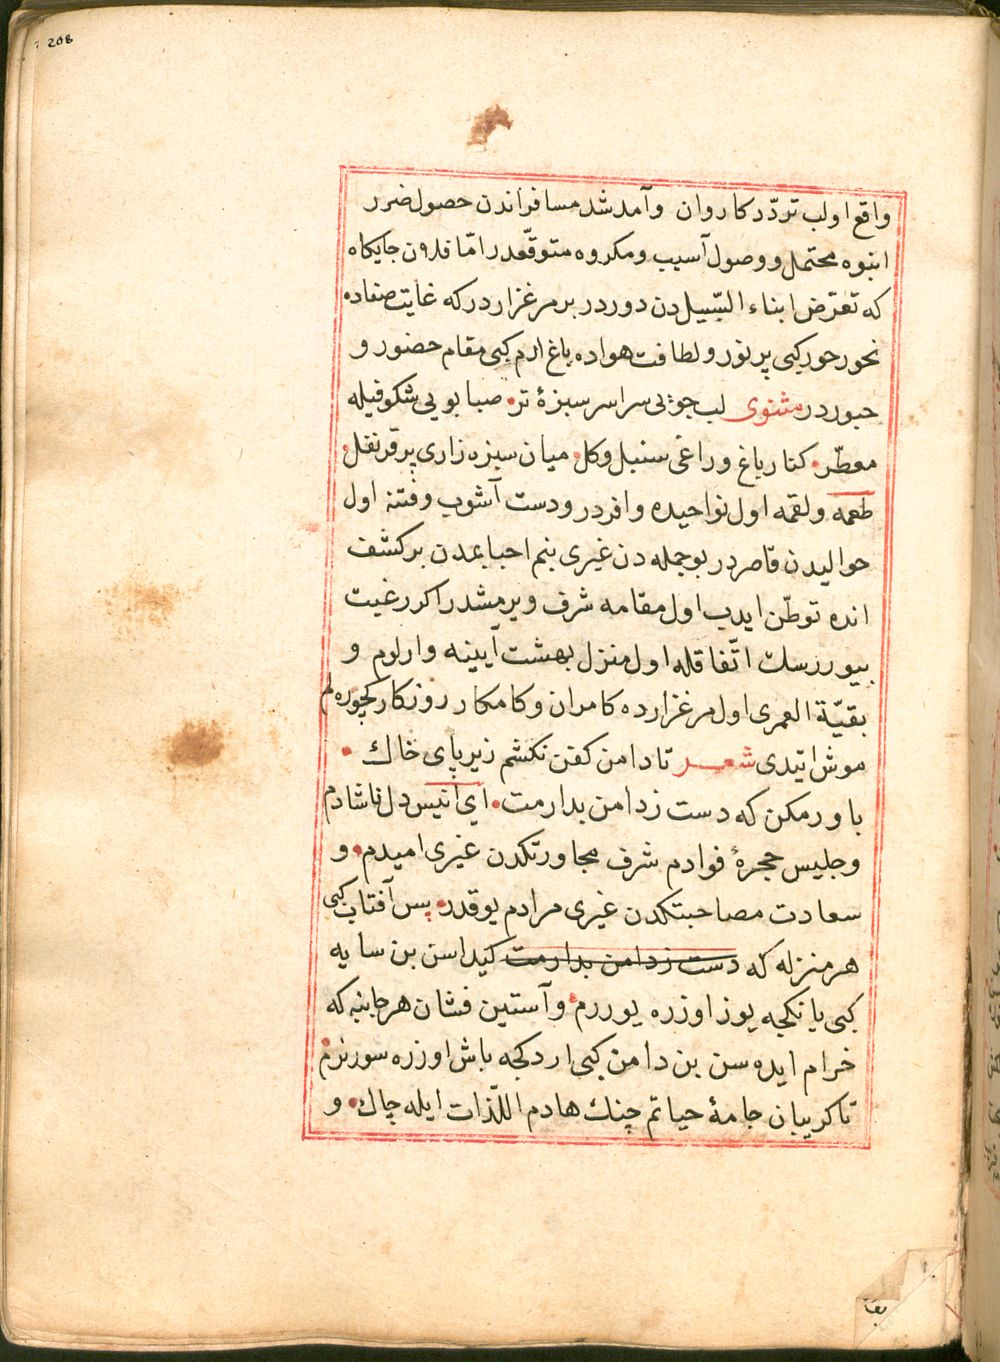 208
واقع اولب تردّد كاروان وآمد شد مسافراندن حصول ضرر
انبوه محتمل و وصول آسيب ومكروه متوقّعدر امّا فلان جايكاه
كه تعرّض ابناء السّبيلدن دوردر بر مرغزاردر كه غايت صفاده
نحور حور كبى پر نور و لطافت هواده باغ ارم كبى مقام حضور و
حبوردر مثنوى لب جوئى سراسر سبزهٔ تر صبا بويى شكوفيله
معطّر كنار باغ وراغى سنبل وكل ميان سبزه زارى پر قرنفل
طعمه ولقمه اول نواحيده وافردر ودست آشوب وفتنه اول
حواليدن قاصردر بو جمله دن غيرى بنم احبابمدن بر كشف
انده توطّن ايدب اول مقامه شرف ويرمشدر اكر رغبت
بيوررسك اتّفاقله اول منزل بهشت آيينه وارلوم و
بقيّة العمرى اول مرغزارده كامران وكامكار روزكار كچوره لم
موش ايتدى شعر تا دامن كفن نكشم زير پاى خاك
باور مكن كه دست ز دامن بدارمت اى انيس دل ناشادم
وجليس حجرهٔ فوادم شرف مجاورتكدن غيرى اميدم و
سعادت مصاحبتكدن غيرى مرادم يوقدر پس آفتاب كبى
هر منزله كه دست ز دامن بدارمت كيداسن بن سايه
كبى يانكجه يوز اوزره يوررم وآستين فشان هر جانبه كه
خرام ايده سن بن دامن كبى اردكجه باش اوزره سورنرم
تا كريبان جامهٔ حياتم چنك هادم اللّذات ايله چاك و
بقا